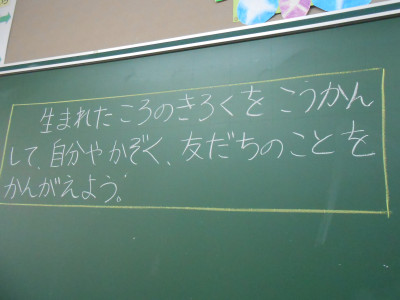 生まれたころのきろくを こうかん
して、自分やかぞく、友だちのことを
かんがえよう。